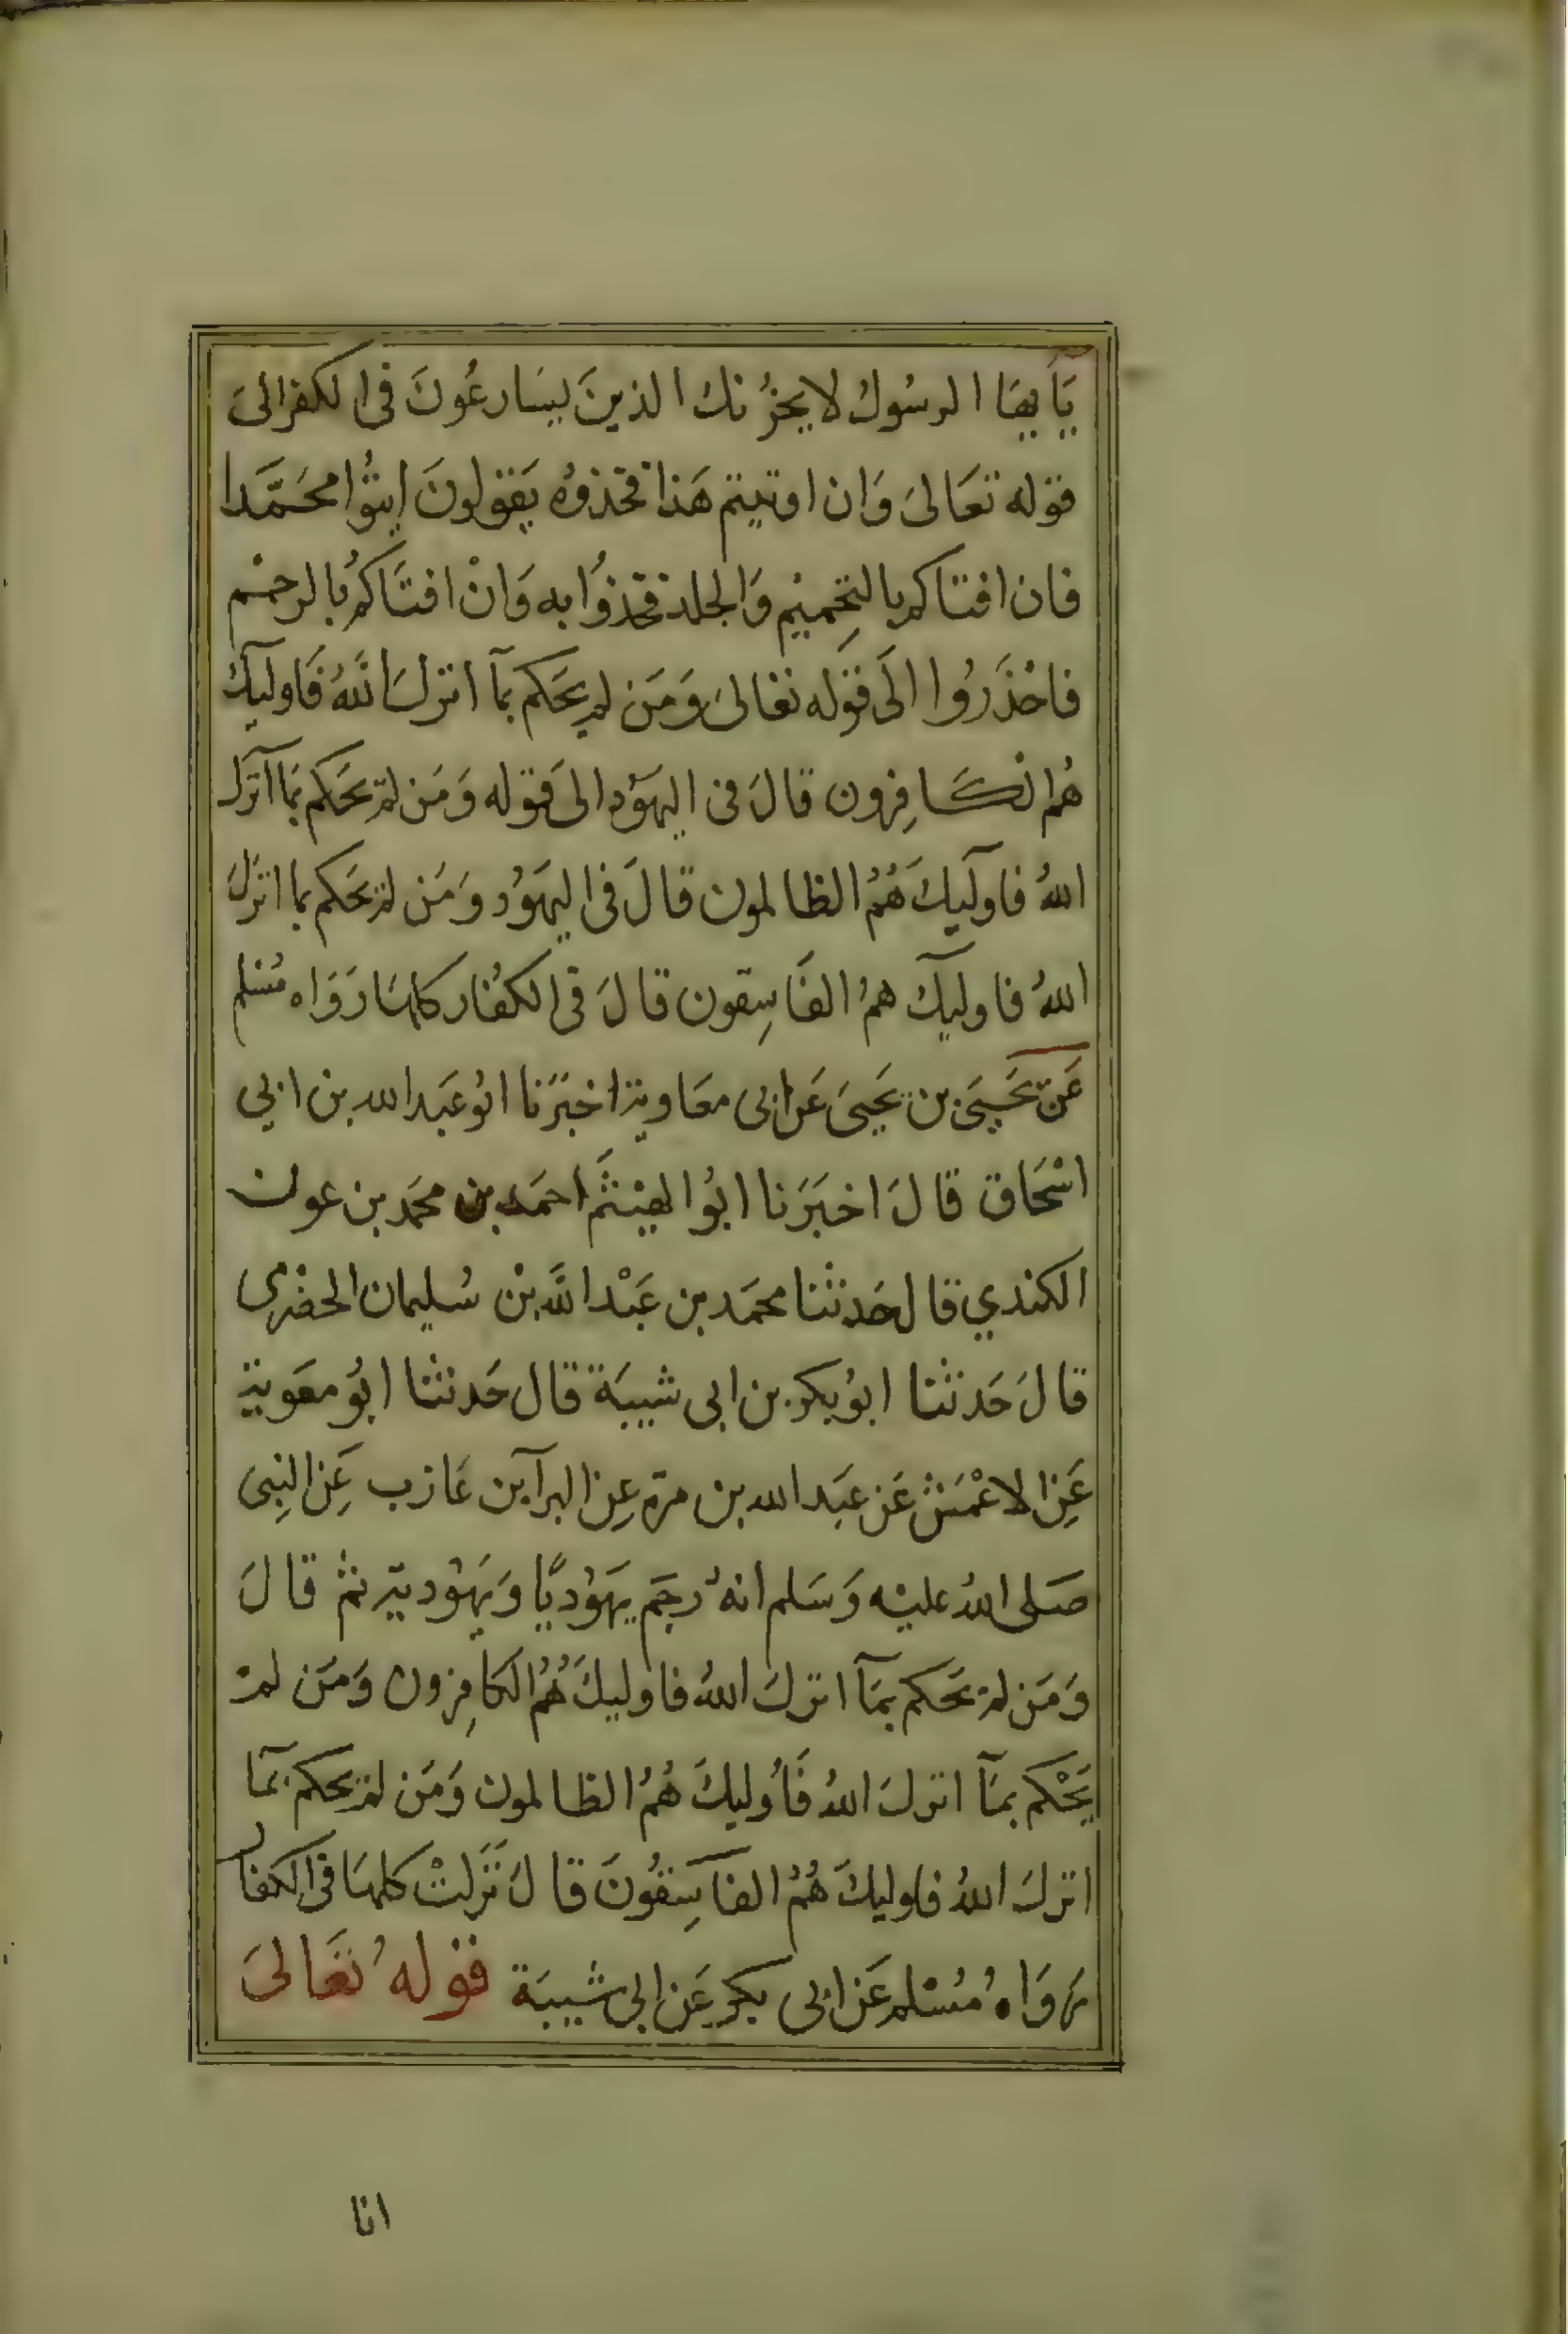 يَاَيهَا الرسُوكُ لا يحزُنك الذينَ يسَارعُونَ فى الكفرالىَ
قوله تعَالىَ وَان اوتيتم هَذا فخذوُه يَقولونَ ايتُوا محَمَّدا
فان افتاكم بالتحِميم وَالجلد فخذوُا به وَانْ افتَاكمُ بالرجم
فاحْذَرُوا الَى قوَله تعالىَ وَمَن لم يحَكم بمآ انزلَ اللَّهُ فَاوليكَ
هُم الكَافِرون قالَ فى اليهَوُد الىَ قوله وَمَن لم يَحَكم بمَا آنزَل
اللهُ فاولَيكَ هُمُ الظالمون قالَ فى اليهَوُد وَمَن لم يحَكم بما انزَلَ
اللهُ فاوليكَ همُ الفَاسِقون قالَ فى الكفُار كلهَا رَوَاه مُسْلم
عَن يَحَييَ بن يَحيىَ عَن ابى معَاوية اخبَرَنا ابوُ عَبَد الله بن ابي
اسْحَاق قالَ اخبَرَنا ابوُا لهيْثَم احمَد بن محَمد بن عون
الكندي قال حَدثنا محمَد بن عَبْد اللَّه بْن سُليمان الحضْرمى
قالَ حَدثنا ابوُبكر بن ابى شيبَة قال حَدثنا ابوُ معَوية
عَنِ الاعْمَش عَن عبَد الله بن مرة عِن البرآ بن عَازب عَنِ النبِى
صَلى اللهُ عليْه وَسَلم انهُ رجَم يهَوُديًا وَيهَوُدية ثم قالَ
وَمَن لم يحَكم بمَآ انزلَ اللهُ فاوليكَ هُمُ الكافِرون وَمَن لمْ
يَحْكم بمَآ انزلَ اللهُ فَاُوليكَ هُمُ الظالمون وَمَن لم يحَكم بمَا
انزلَ اللهُ فاوليكَ هُمُ الفاسَِقُونَ قالَ نَزَلتْ كلهَا فى الكفار
رَوَاهُ مُسْلم عَن ابى بكر عَن ابى شيبَة قوله تعَالىَ
انا